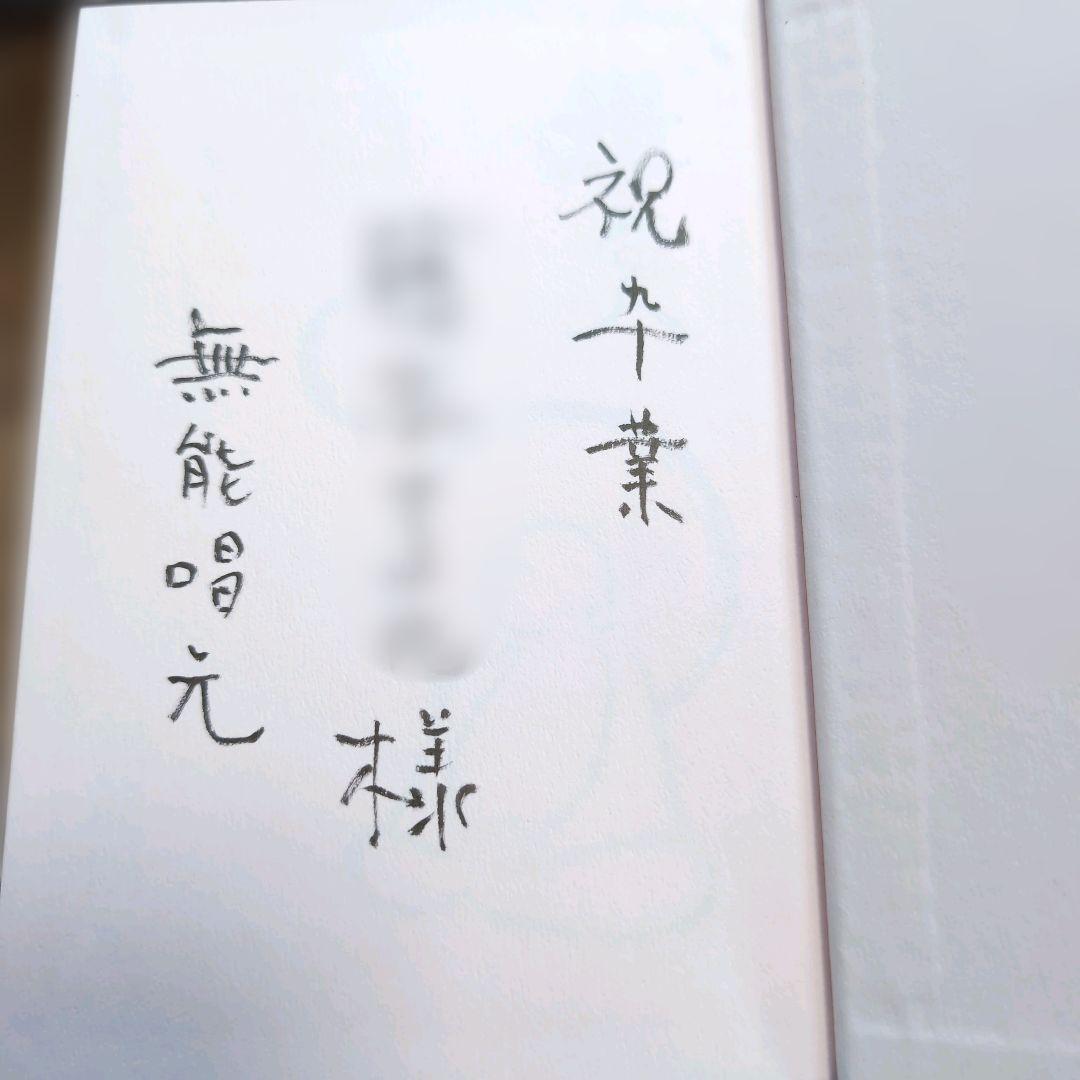 祝卆業
様
無能唱元